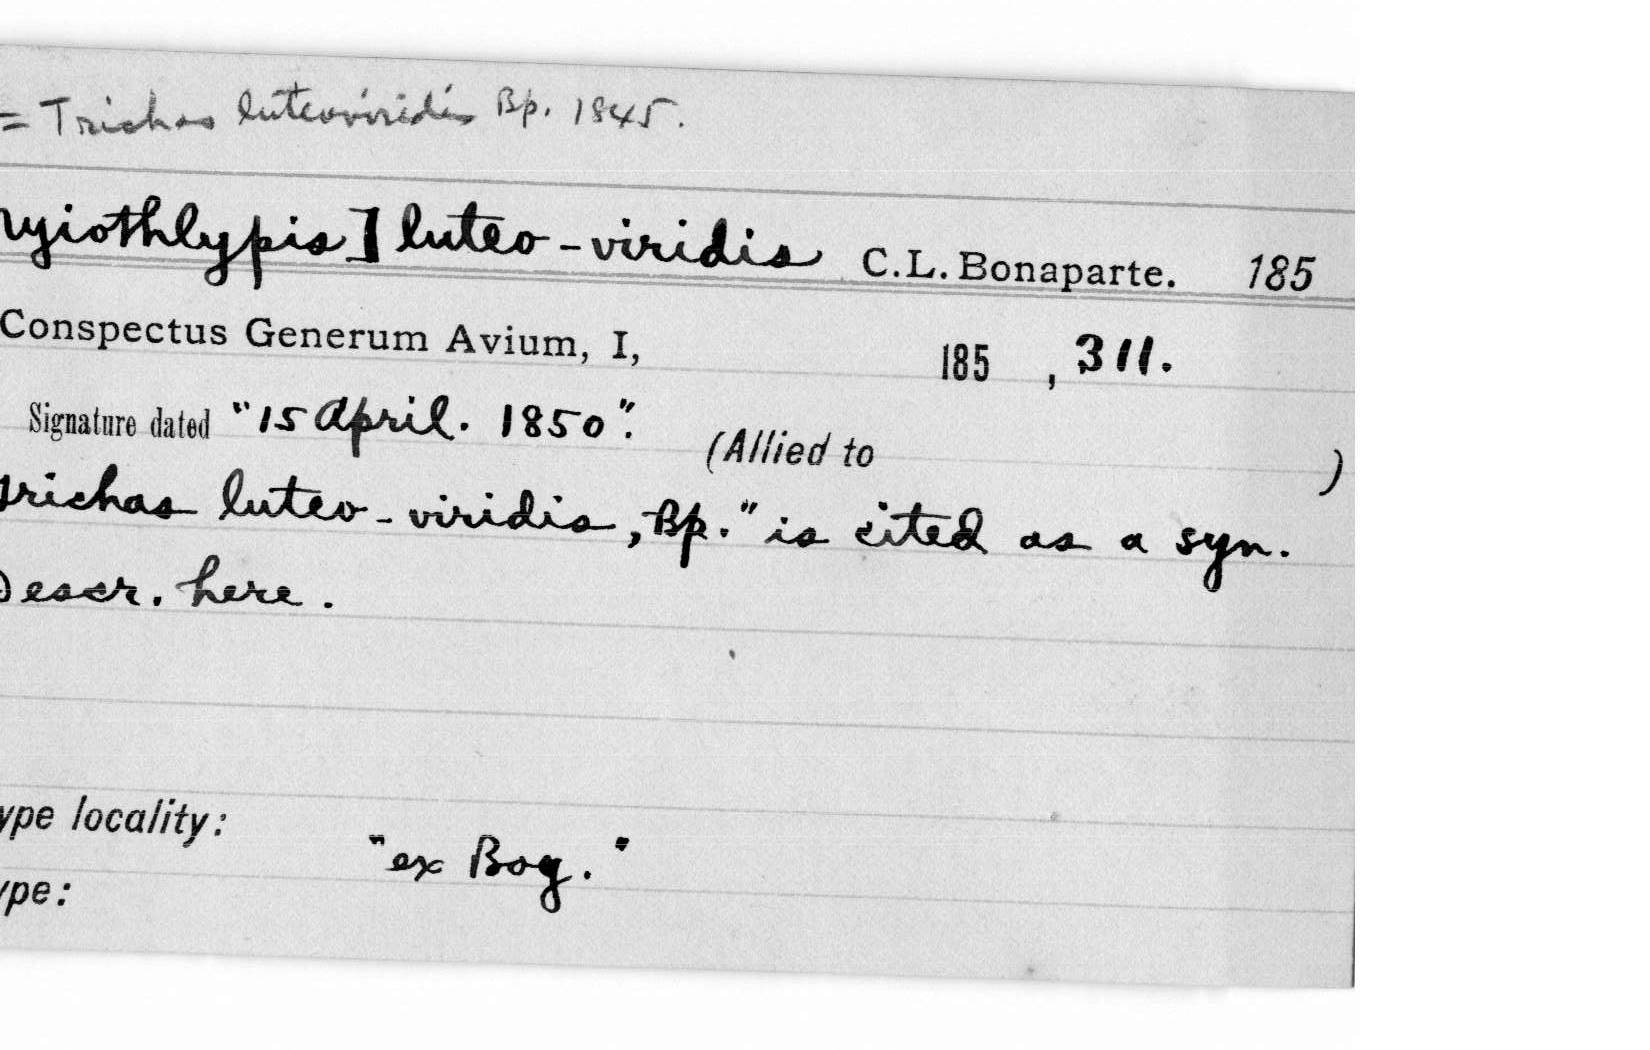 = Trichas luteoviridis Bp. 1845.
yiothlypis] luteo-viridis C.L. Bonaparte. 185
Conspectus Generum Avium, I, 185 , 311.
Signature dated "15 April. 1850". (Allied to )
Trichas luteo-viridis, Bp." is cited as a syn.
Descr. here.
ype locality: "ex Bog."
ype: